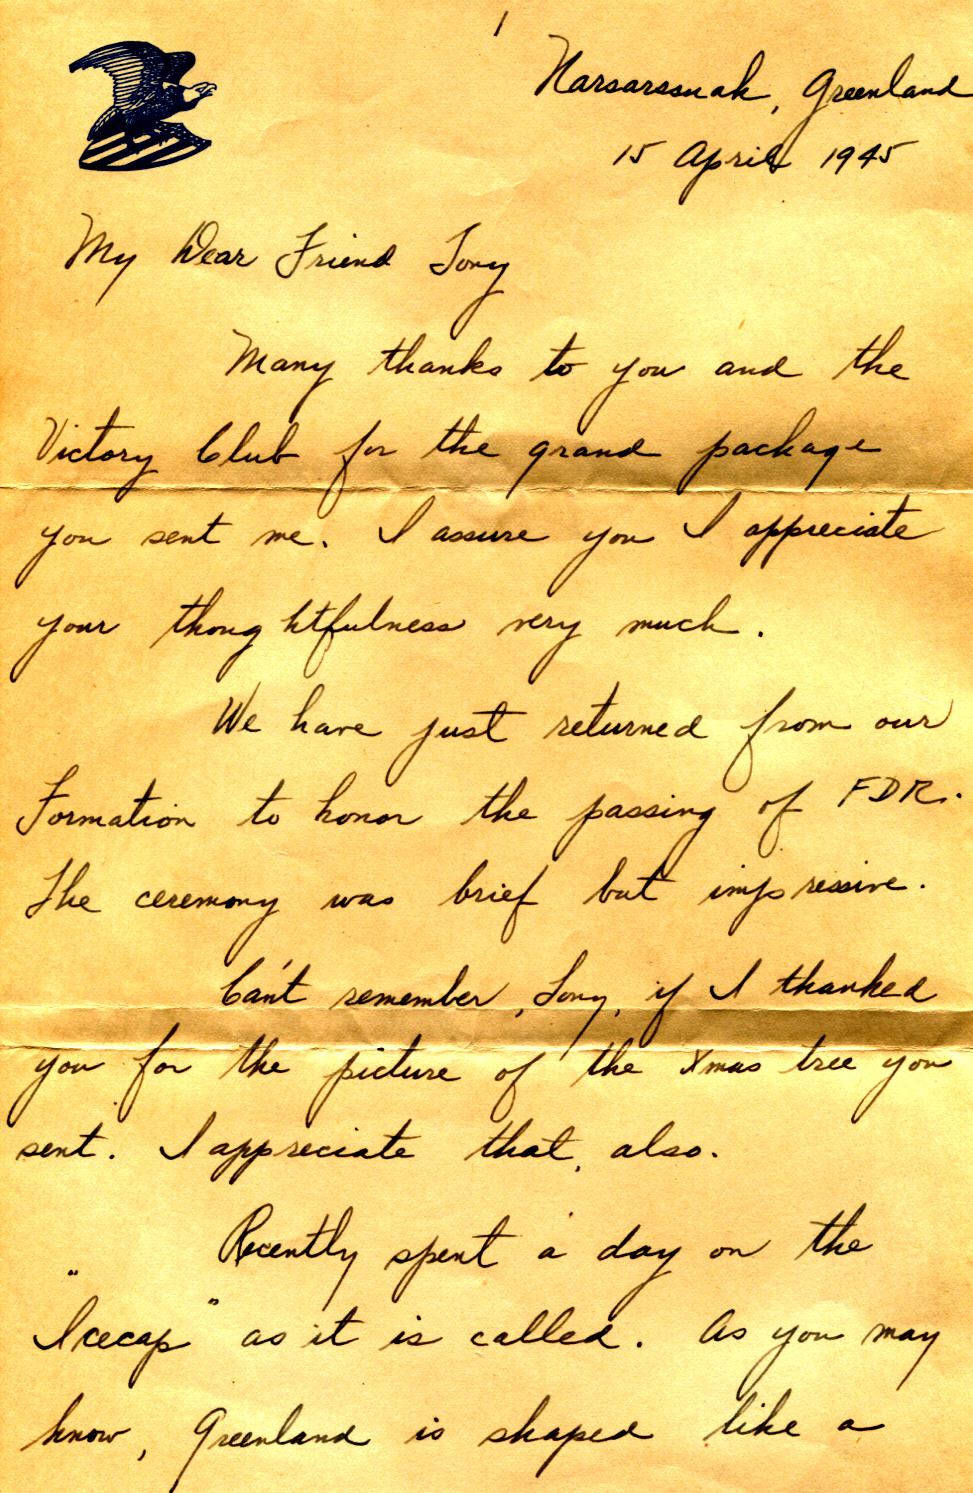 1
Narsarssuak, Greenland
15 April 1945
My Dear Friend Tony
Many thanks to you and the
Victory Club for the grand package
you sent me. I assure you I appreciate
your thoughtfulness very much.
We have just returned from our
Formation to honor the passing of FDR.
The ceremony was brief but impressive.
Can't remember, Tony, if I thanked
you for the picture of the Xmas tree you
sent. I appreciate that, also.
Recently spent a day on the
"Icecap" as it is called. As you may
know, Greenland is shaped like a